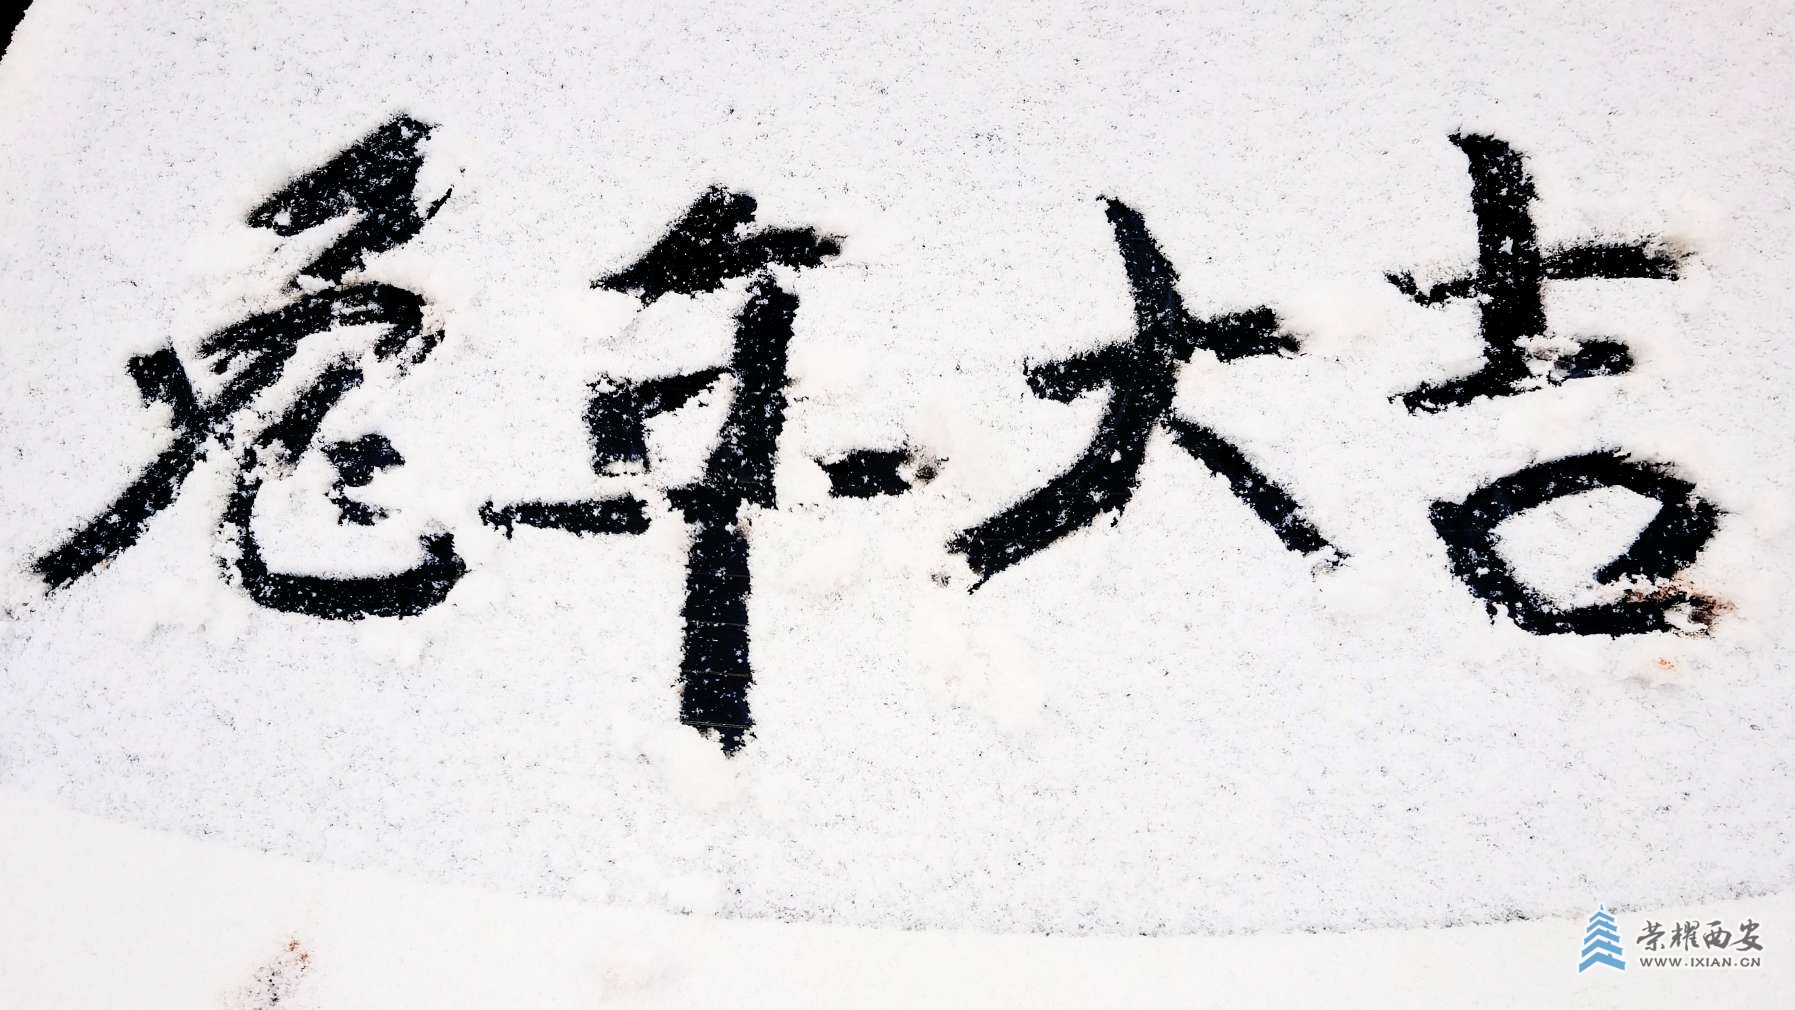 兔年大吉
荣耀西安
WWW.IXIAN.CN